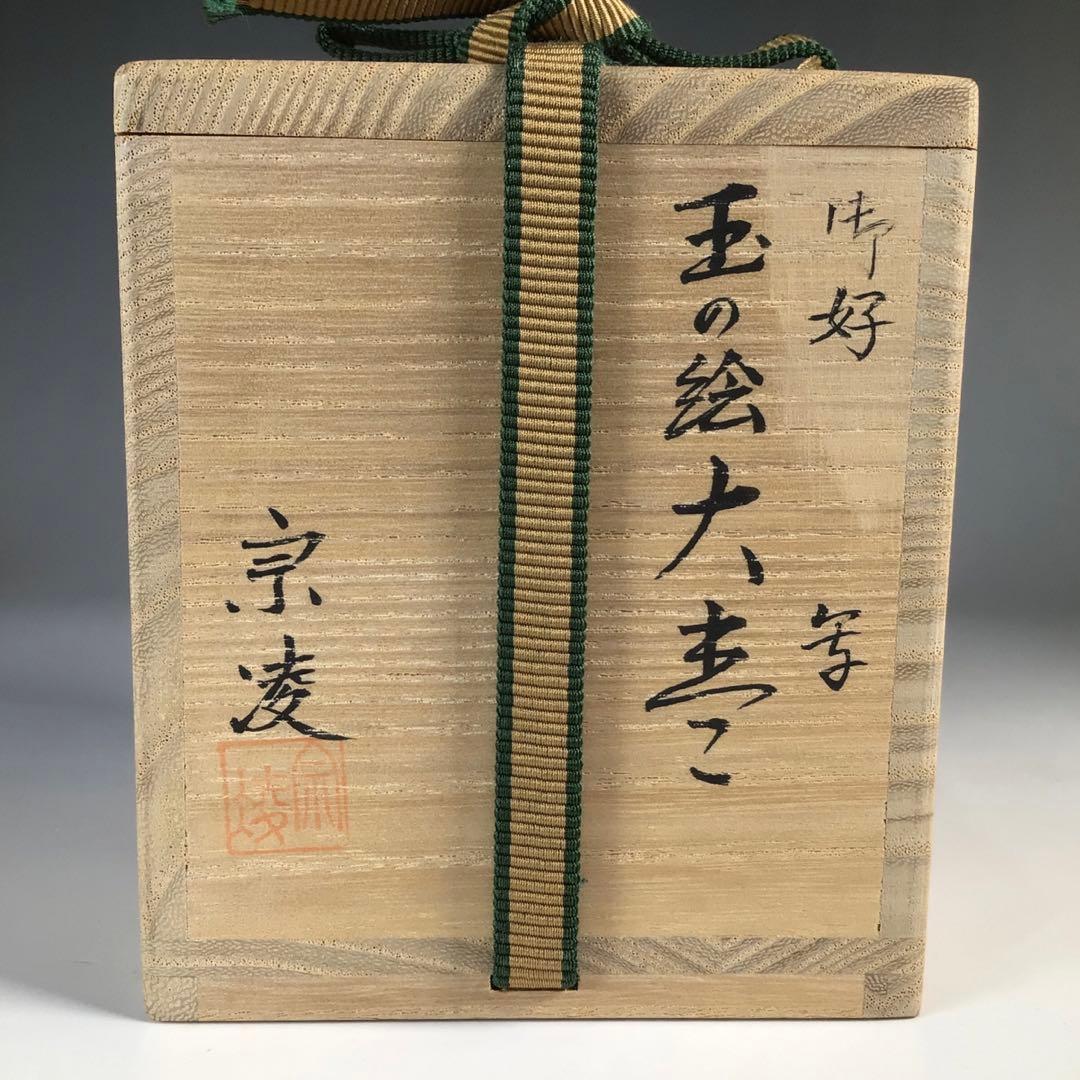 御好 写
玉の絵大棗
宗凌
宗凌